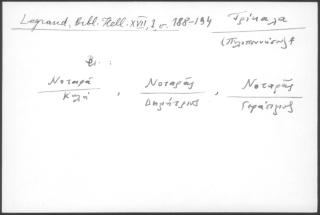 Legrand, Bibl. Hell. XVII, 1 σ. 188-194
Τρίκαλα
(Πελοποννήσου)
Βλ. :
Νοταρᾶ , Νοταρᾶς , Νοταρᾶς
Δημήτριος Γεράσιμος